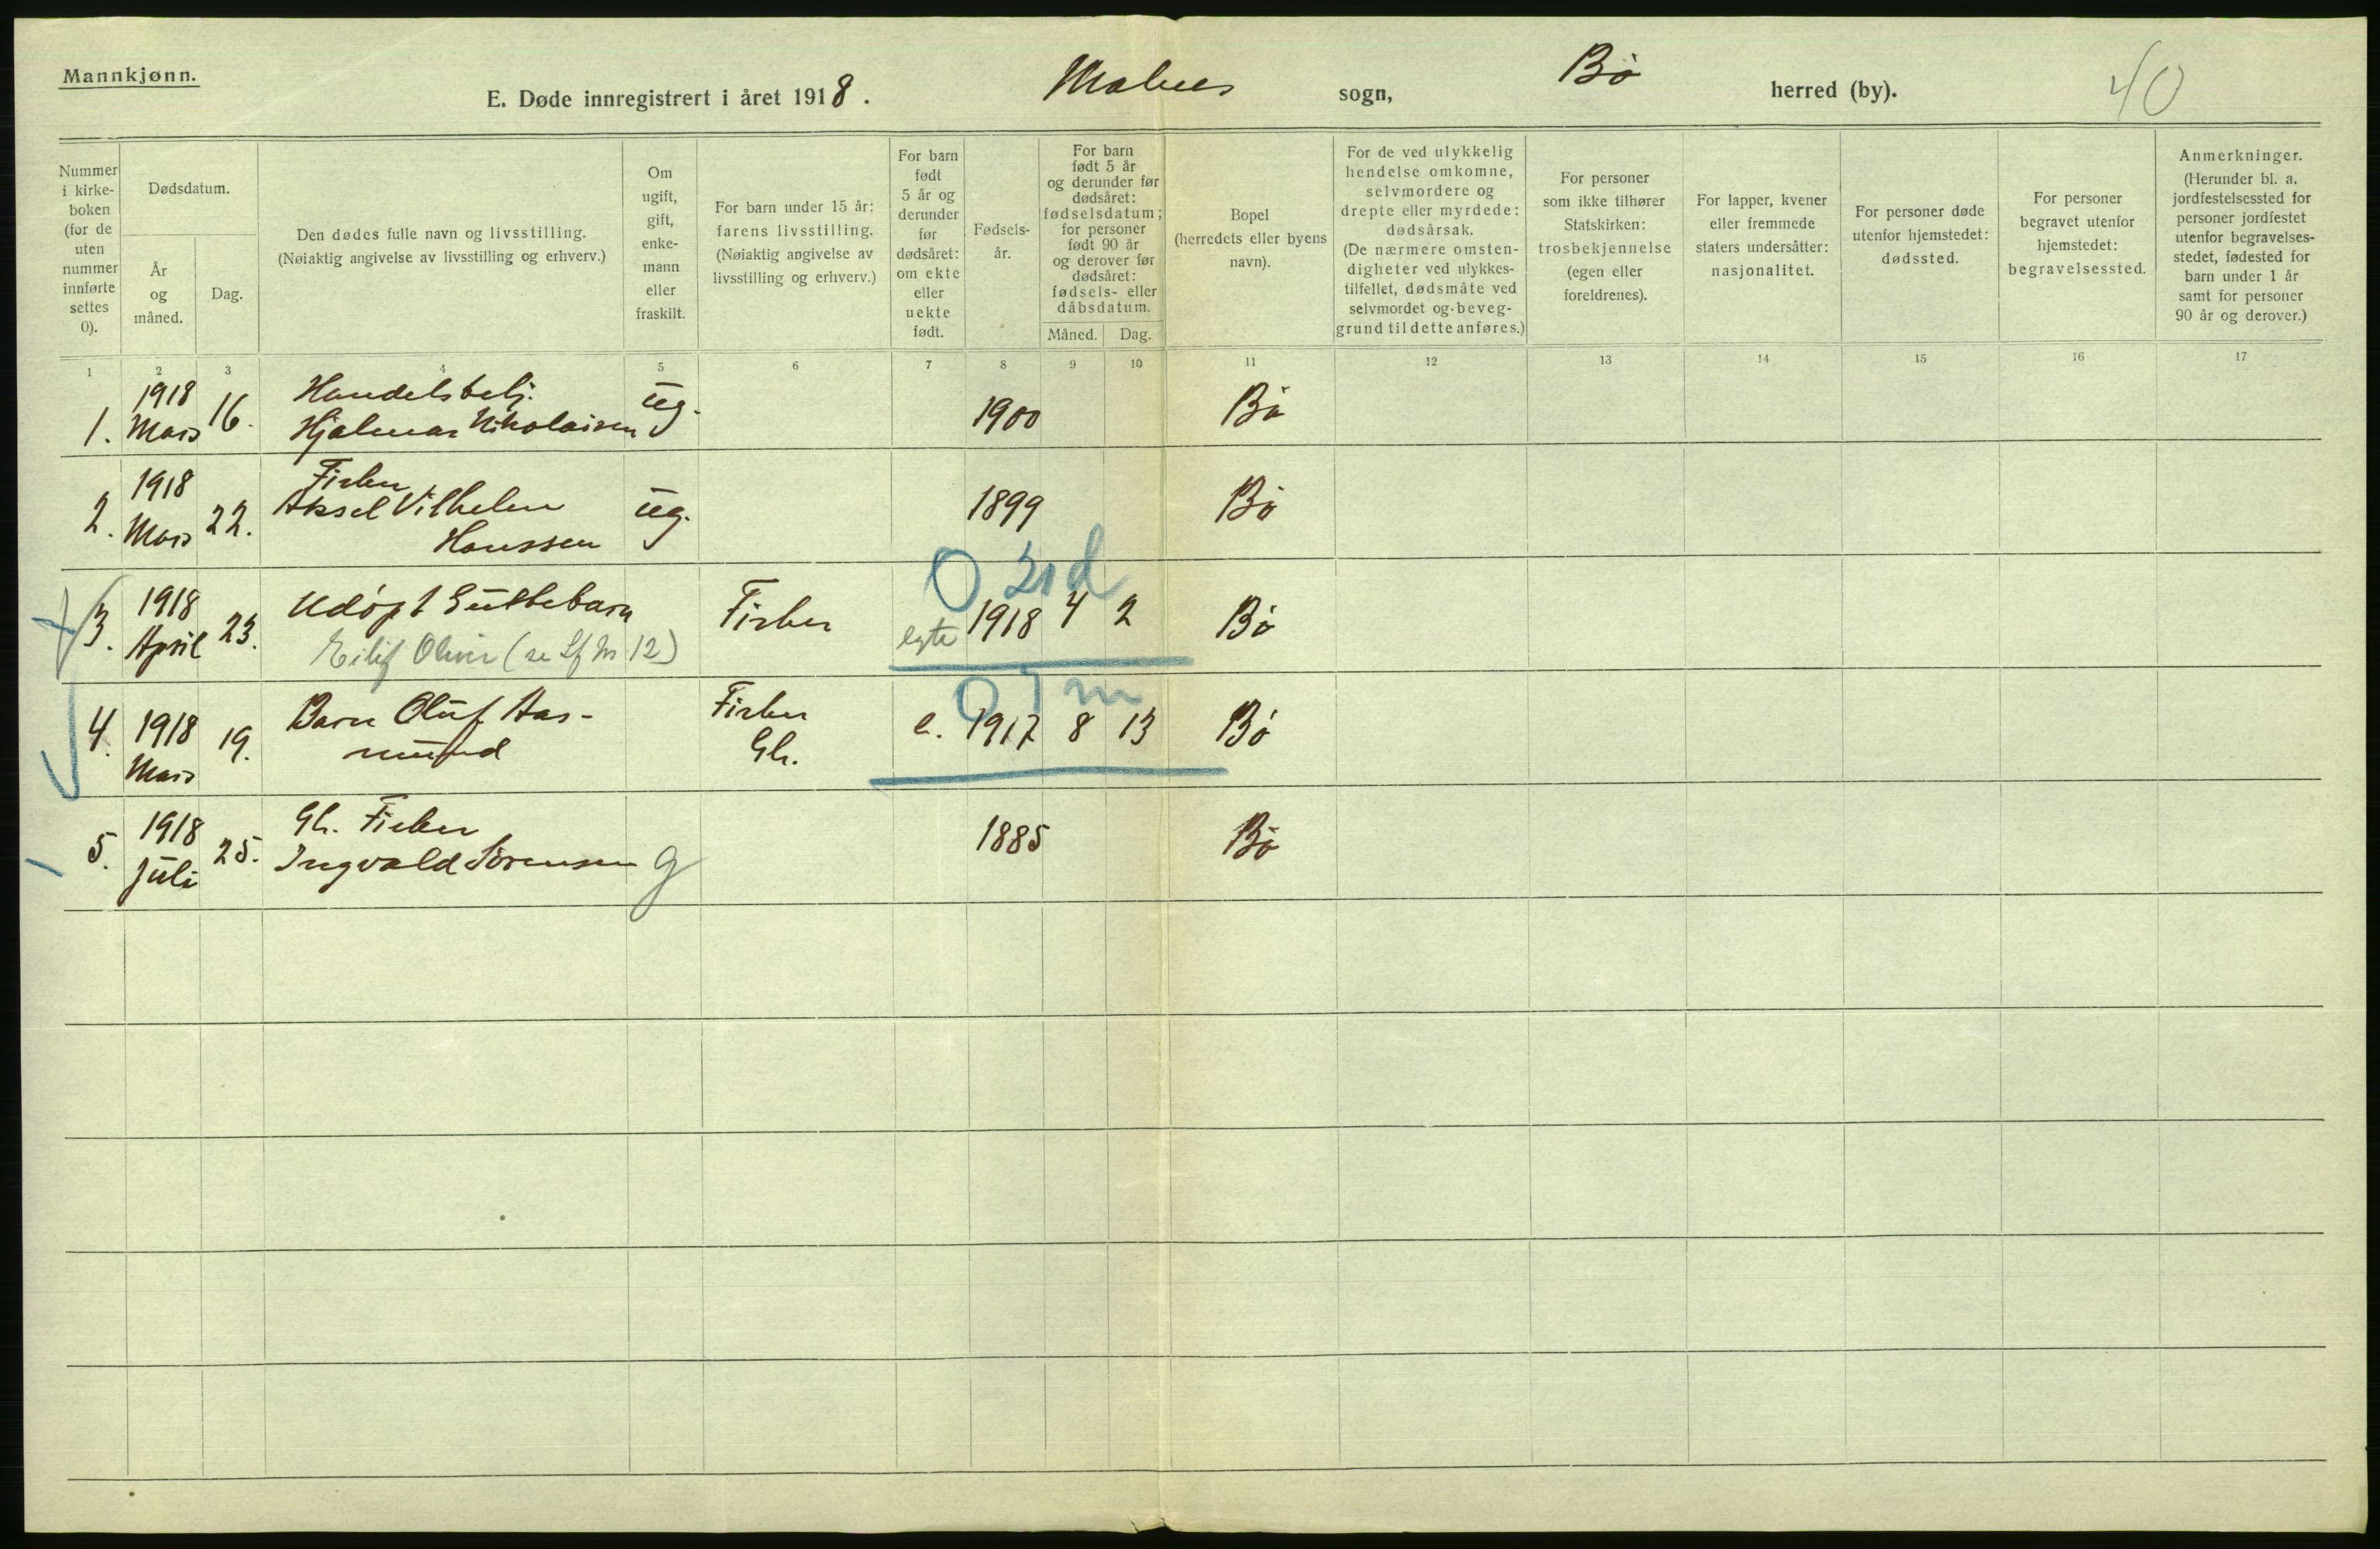 Mannkjønn.
E. Døde innregistrert i året 1918. Malnes sogn, Bø herred (by). 40
Nummer i kirke-boken (for de uten nummer innførte settes 0).
Dødsdatum.
År og måned.
Dag.
Den dødes fulle navn og livsstilling.
(Nøiaktig angivelse av livsstilling og erhverv.)
Om ugift, gift, enke-mann eller fraskilt.
For barn under 15 år: farens livsstilling. (Nøiaktig angivelse av livsstilling og erhverv.)
For barn født 5 år og derunder før dødsåret: om ekte eller uekte født.
Fødsels-år.
For barn født 5 år og derunder før dødsåret: fødselsdatum; for personer født 90 år og derover før dødsåret: fødsels- eller dåbsdatum.
Måned. Dag.
Bopel (herredets eller byens navn).
For de ved ulykkelig hendelse omkomne, selvmordere og drepte eller myrdede: dødsårsak. (De nærmere omsten-digheter ved ulykkes-tilfellet, dødsmåte ved selvmordet og beveg-grund til dette anføres.)
For personer som ikke tilhører Statskirken: trosbekjennelse (egen eller foreldrenes).
For lapper, kvener eller fremmede staters undersåtter: nasjonalitet.
For personer døde utenfor hjemstedet: dødssted.
For personer begravet utenfor hjemstedet: begravelsessted.
Anmerkninger. (Herunder bl. a. jordfestelsessted for personer jordfestet utenfor begravelses-stedet, fødested for barn under 1 år samt for personer 90 år og derover.)
1 2 3 4 5 6 7 8 9 10 11 12 13 14 15 16 17
1918 Handelsbetj.
1. Mars 16. Hjalmar Nikolaisen ug. 1900 Bø
1918 Fisker
2. Mars 22. Aksel Vilhelm Hanssen ug. 1899 Bø
0 21 d
3. 1918 April 23. Udøpt Guttebarn Fisker egte 1918 4 2 Bø
Eilif Oliver (se Lf nr 12)
0 7 m
4. 1918 Mars 19. Barn Oluf Aas-mund Fisker Gb. e. 1917 8 13 Bø
1918 Gb. Fisker
5. Juli 25. Ingvald Sörensen g 1885 Bø